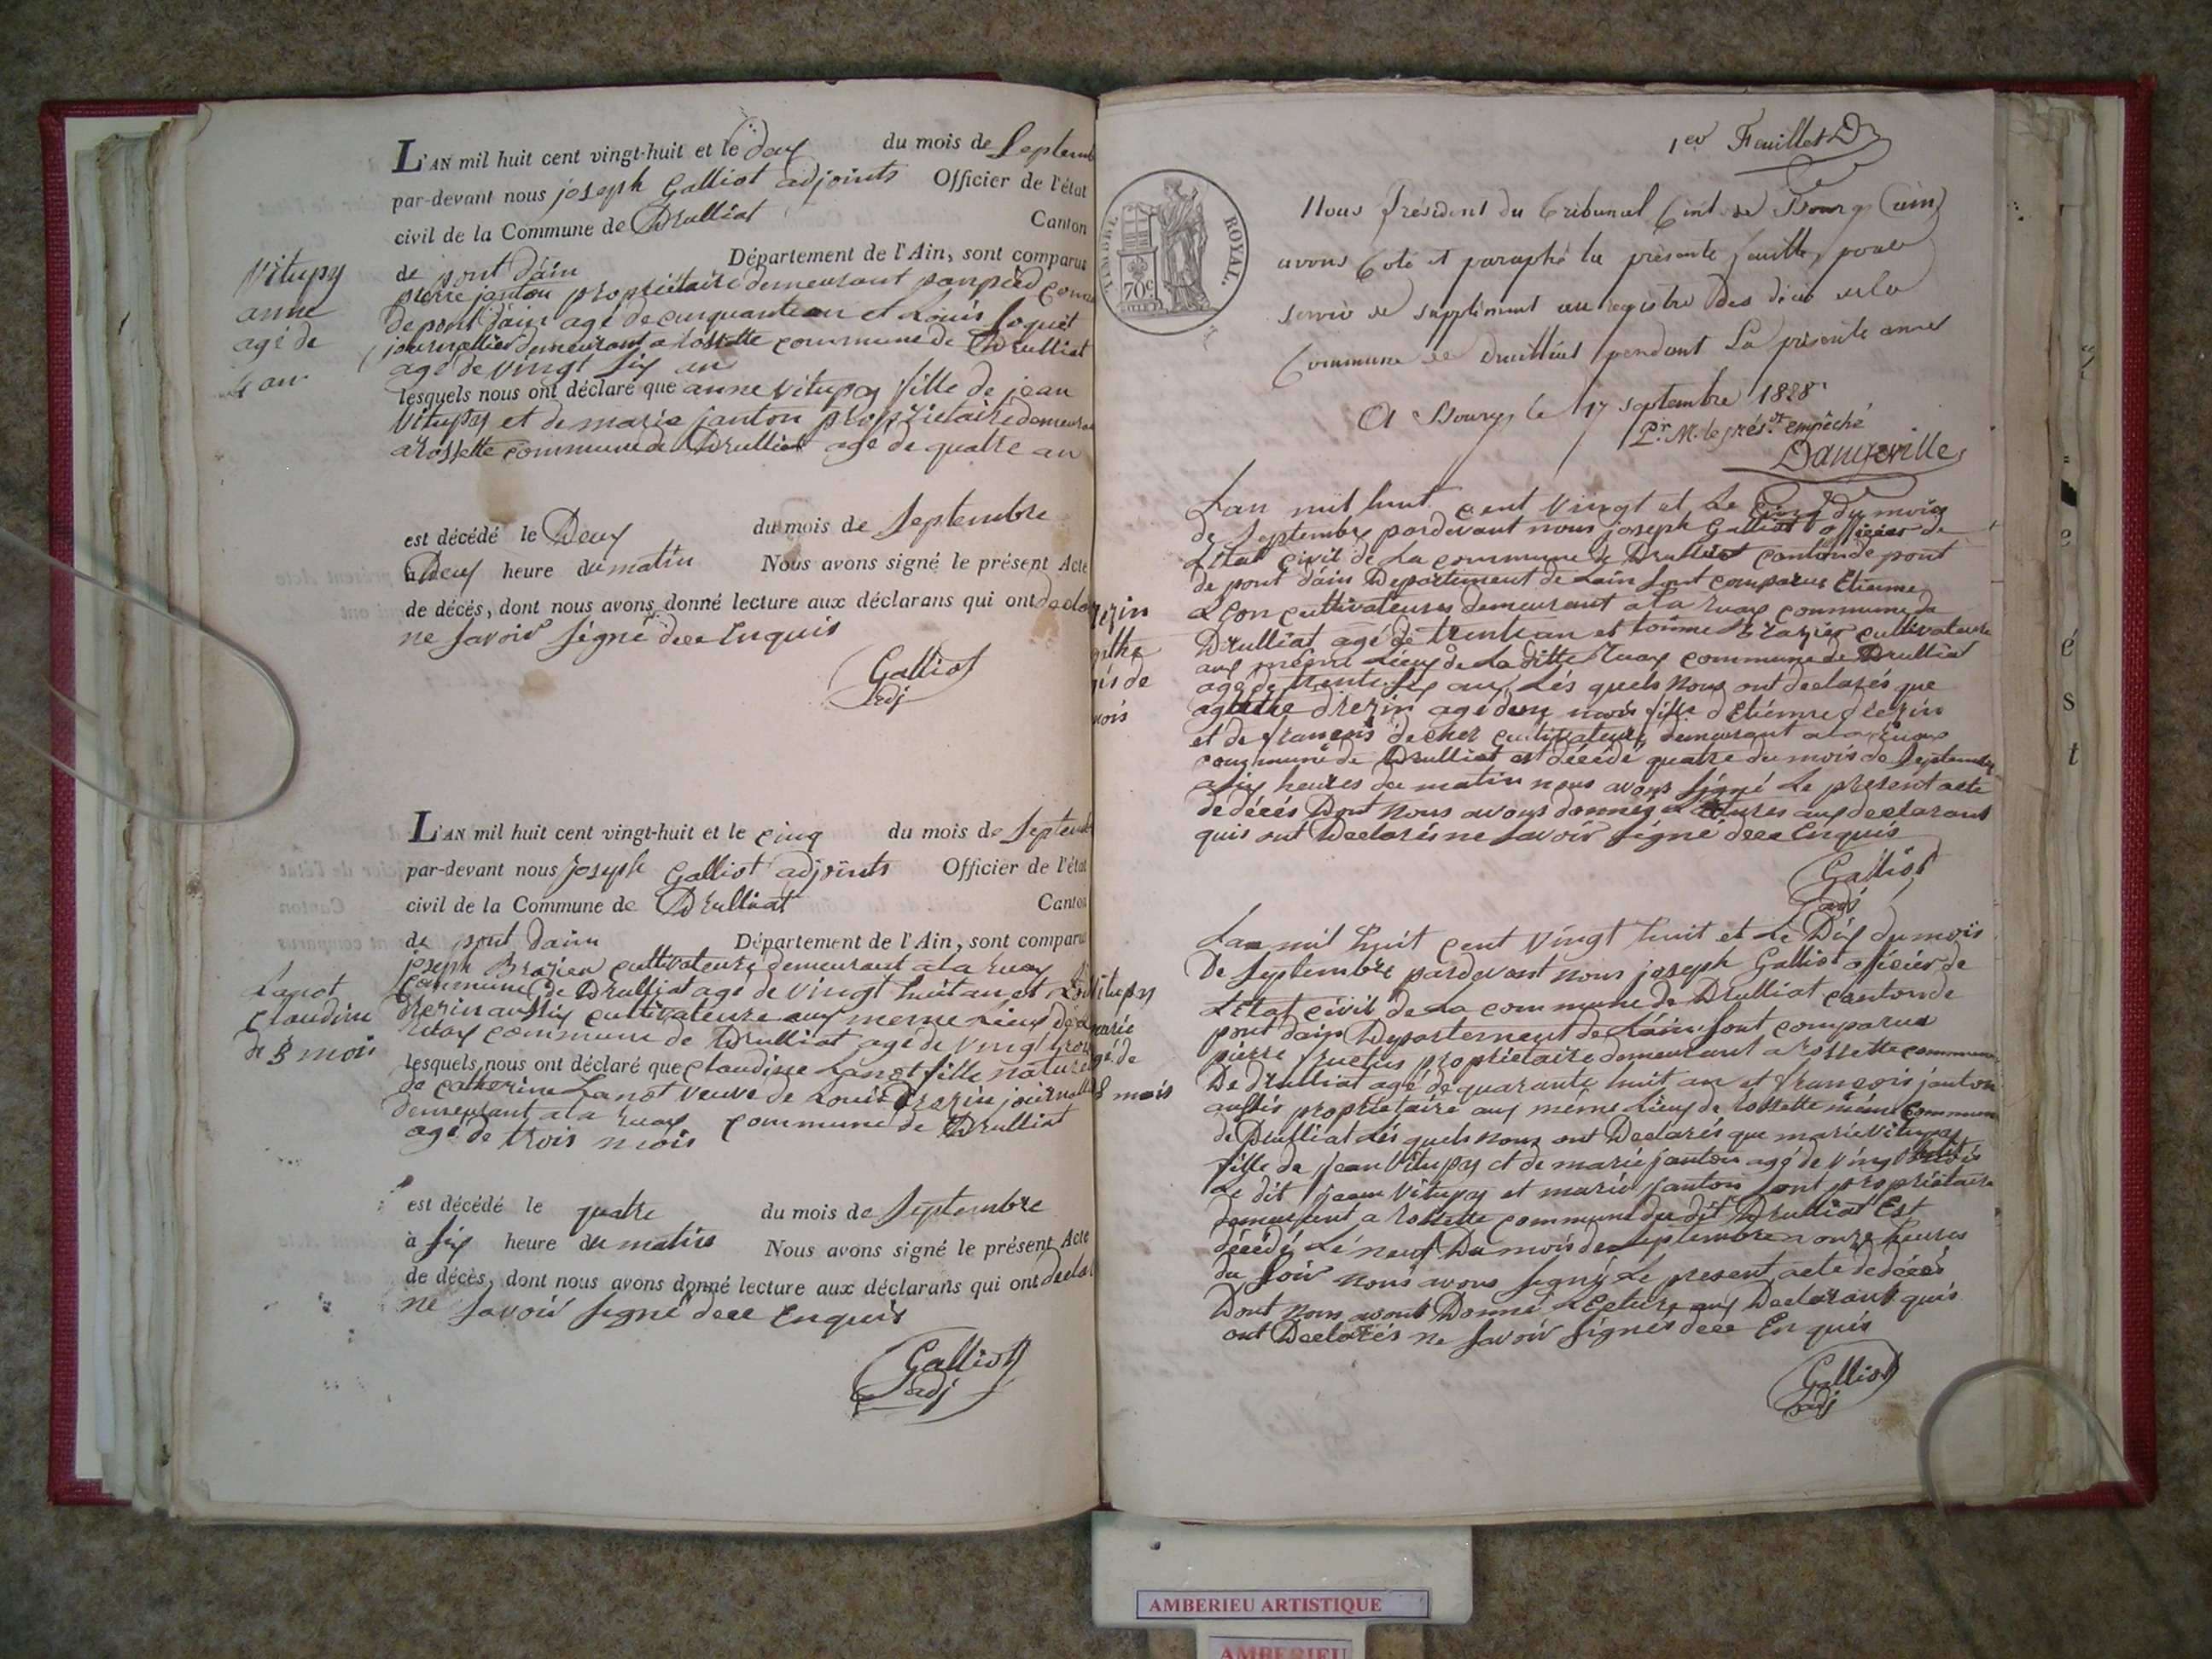 L'AN mil huit cent vingt-huit et le deux du mois de Septemb
par-devant nous joseph Galliot adjoints Officier de l'état
civil de la Commune de Drulliat Canton
de pont dain Département de l'Ain, sont comparus
pierre janton propriétaire demeurant
de pont dain agé de cinquante an et Louis
journallier demeurant a rossette commune de Drulliat
agé de vingt six an
lesquels nous ont déclaré que anne Vitupay fille de jean
Vitupay et de marie janton propriétaire demeura
a rossette commune de Drulliat agé de quatre an
est décédé le Deux du mois de Septembre
à Deux heure du matin Nous avons signé le présent Acte
de décès, dont nous avons donné lecture aux déclarans qui ont decla
ne Savoir Signé dece Enquis
Galliot
adj
Vitupay
anne
agé de
4 an
L'AN mil huit cent vingt-huit et le cinq du mois de Septemb
par-devant nous Joseph Galliot adjoints Officier de l'état
civil de la Commune de Drulliat Canton
de pont dain Département de l'Ain, sont comparu
joseph Brazier cultivateure demeurant a la ruax
Commune de Drulliat agé de vingt huit an et
Drezin aussiy cultivateure aux meme Lieux
ruax commune de Drulliat agé de vingt
lesquels nous ont déclaré que Claudine Lanot fille nature
de catherine Lanot veuve de Louis Drezin journall
demeurant a la ruax commune de Drulliat
agé de trois mois
est décédé le quatre du mois de Septembre
à Six heure du matin Nous avons signé le présent Acte
de décès, dont nous avons donné lecture aux déclarans qui ont decla
ne Savoir Signé dece Enquis
Galliot
adj
Lanot
Claudine
de 3 mois
1er Feuillet
TIMBRE ROYAL.
70c
Nous Président du Tribunal Civil de Bourg (ain)
avons Coté et paraphé la présente feuille, pour
servir de supplément au registre des décès de la
Commune de Druilliat pendant La présente année
A Bourg, le 17 Septembre 1828
Pr. M. le présdt empêché
Dangeville
Lan mil huit cent vingt et Le Cinq du mois
de Septembre pardevant nous joseph Galliot officier de
Létat civil de La commune de Drulliat canton de pont
de pont dain Département de Lain Sont comparus Etienne
cultivateures demeurant a la ruax commune de
Drulliat agé de trente an et Brazier cultivateure
aux même Lieux de La ditte Ruax commune de Drulliat
agé de trente Six an, Lés quels Nous ont declarés que
agathe drezin agé dun mois fille d Etienne drezin
et de françois cultivateure demeurant a la ruax
commune de Drulliat est décédé quatre du mois de Septembre
a Six heures du matin nous avons Signé Le present acte
de décés Dont Nous avons donnés Lectures aux declarant
quis ont Declarés ne Savoir Signé dece Enquis
Galliot
adj
rezin
athe
gés de
mois
Lan mil huit cent Vingt huit et Le Dix du mois
De Septembre pardevant nous joseph Galliot oficier de
Létat civil de La commune de Drulliat canton de
pont dain Departement de Lain Sont comparus
pierre propriétaire demeurant a rossette commune
De drulliat agé de quarante huit an et françois janton
aussis propriétaire aux même Lieux de rossette même Commune
de Drulliat Lés quels nous ont Declarés que marie Vitupay
fille de jean Vitupay et de marie janton agé de vingt mois
Le dit jean Vitupay et marie janton Sont propriétaire
demeurent a rossette commune du dit Drulliat Est
décédé Le neuf Du mois de Septembre a onze heures
du Soir nous avons Signé Le present acte de décés
Dont nous avons Donné Lecture aux Declarant quis
ont Declarés ne Savoir Signés dece En quis
Galliot
adj
itupay
marie
gé de
8 mois
é
s
t
AMBERIEU ARTISTIQUE
AMBERIEU